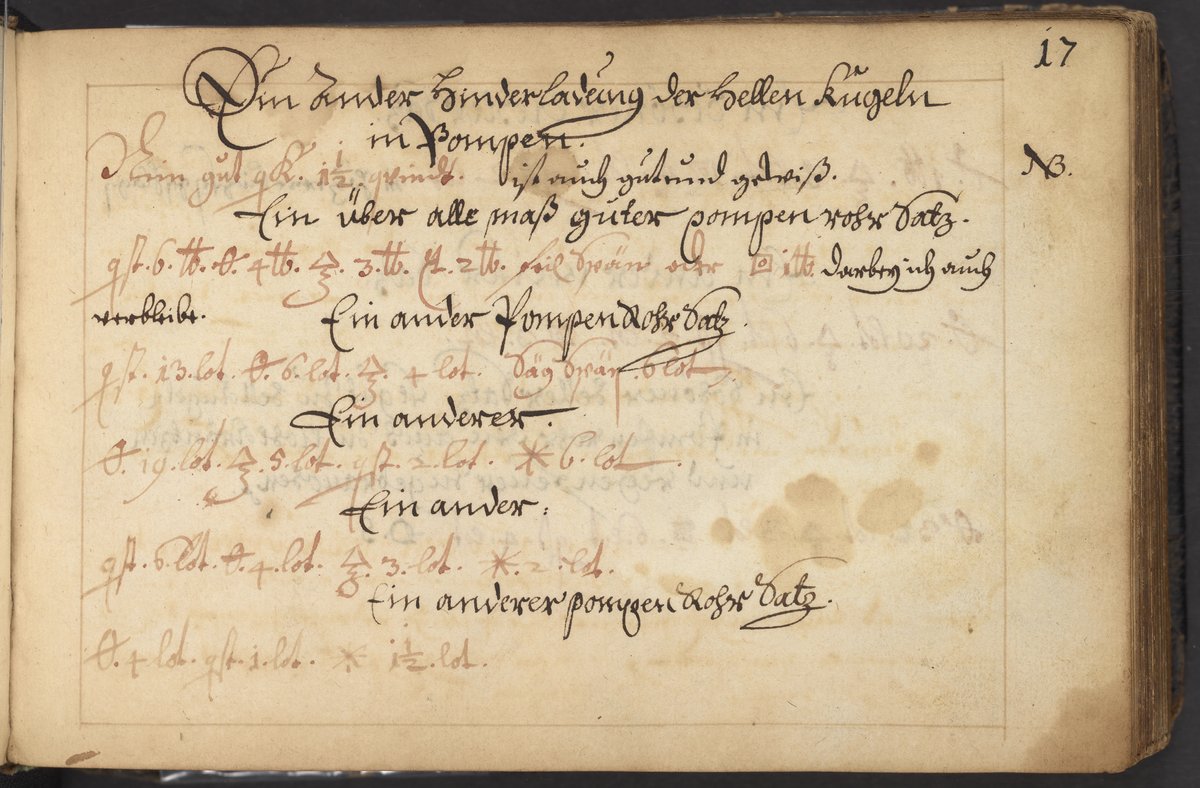 17
Ein Ander Hinderladung der Hellen Kugeln
in Pompen.
Nim gut qK. 1½. quindt. ist auch gut und gewiß. NB.
Ein über alle maß guter pompen rohr Satz.
qst. 6. tb. 4 tb. 3. tb. 2 tb. feil Spän oder 1 tb. darbey ich auch
verbleibe.
Ein ander Pompen Rohr Satz.
qst. 13. lot. 6. lot. 4 lot. Säg Spän. 6 lot.
Ein anderer.
19. lot. 5. lot. qst. 2. lot. 6. lot.
Ein ander:
qst. 6. lot. 4. lot. 3. lot. 2. lot.
Ein anderer pompen Rohr Satz.
4 lot. qst. 1. lot. 1½. lot.